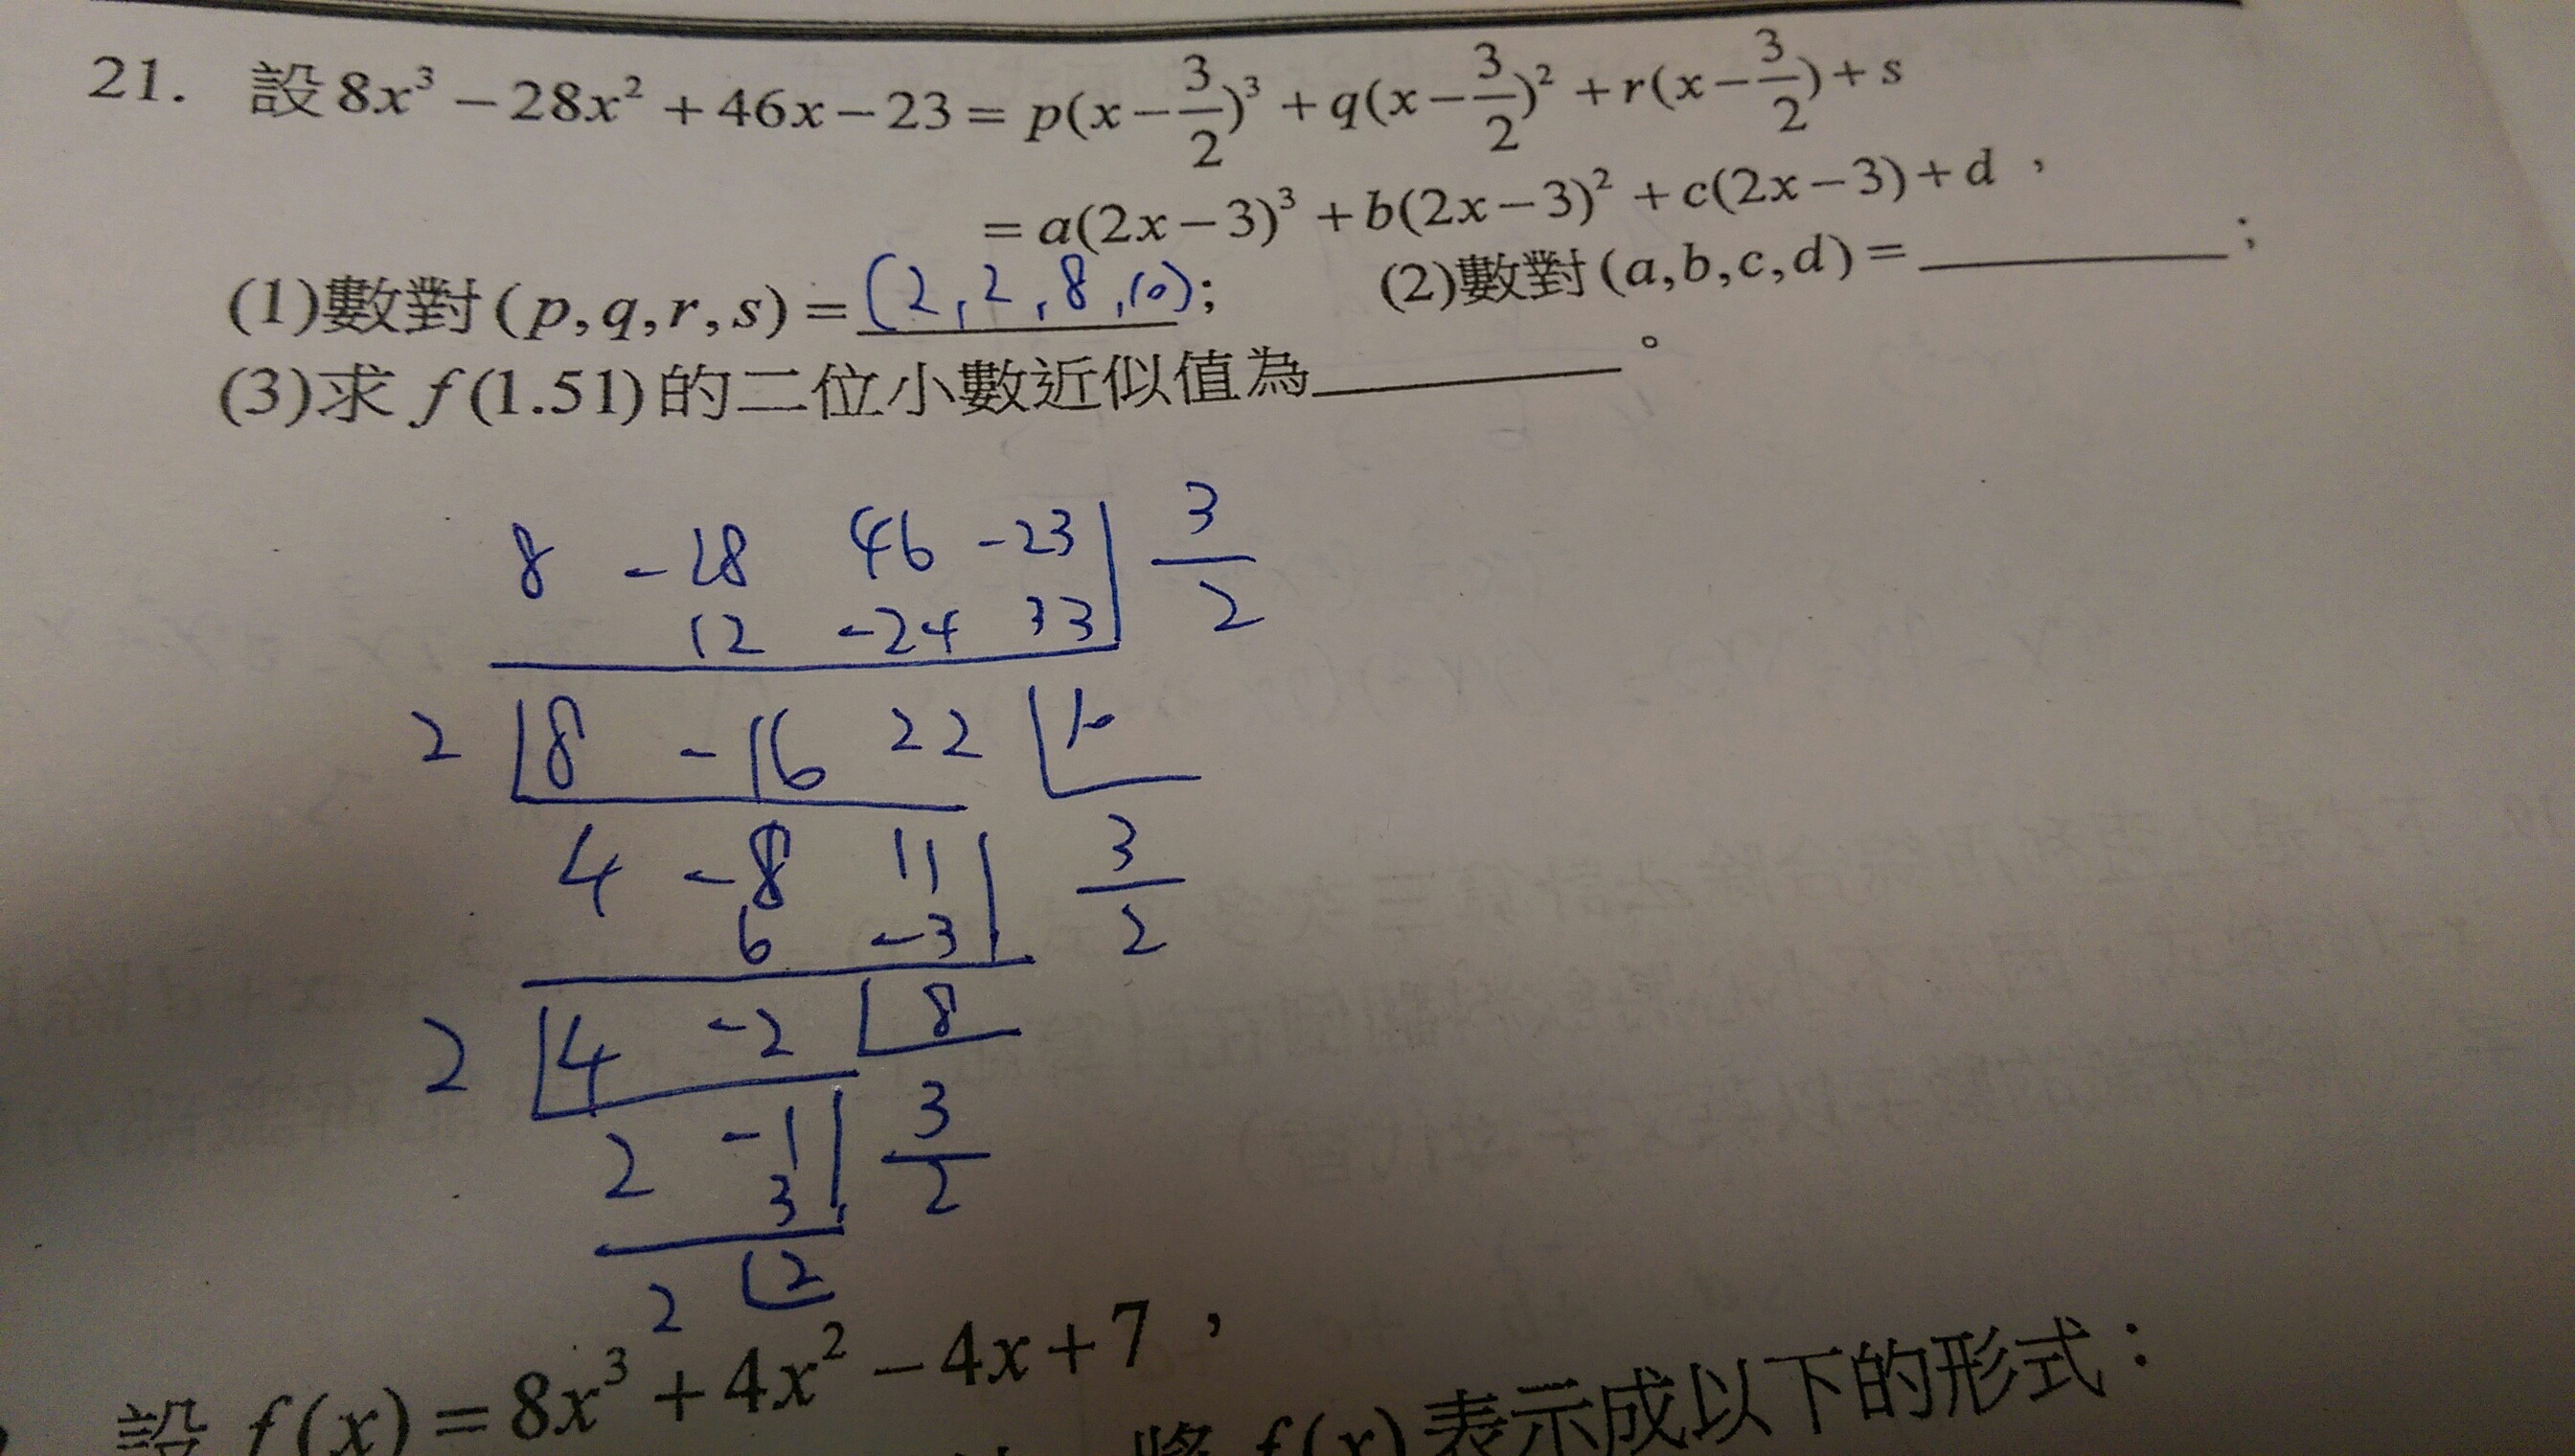 21. 設 8x³ − 28x² + 46x − 23 = p(x − 3/2)³ + q(x − 3/2)² + r(x − 3/2) + s
= a(2x − 3)³ + b(2x − 3)² + c(2x − 3) + d，
(1)數對(p,q,r,s) = (2, 2, 8, 10)； (2)數對(a,b,c,d) = ________；
(3)求 f(1.51)的二位小數近似值為________。
8 -28 46 -23 3/2
12 -24 33
2 8 -16 22 10
4 -8 11 3/2
6 -3
2 4 -2 8
2 -1 3/2
3
2 2
設 f(x) = 8x³ + 4x² − 4x + 7，
將 f(x)表示成以下的形式：